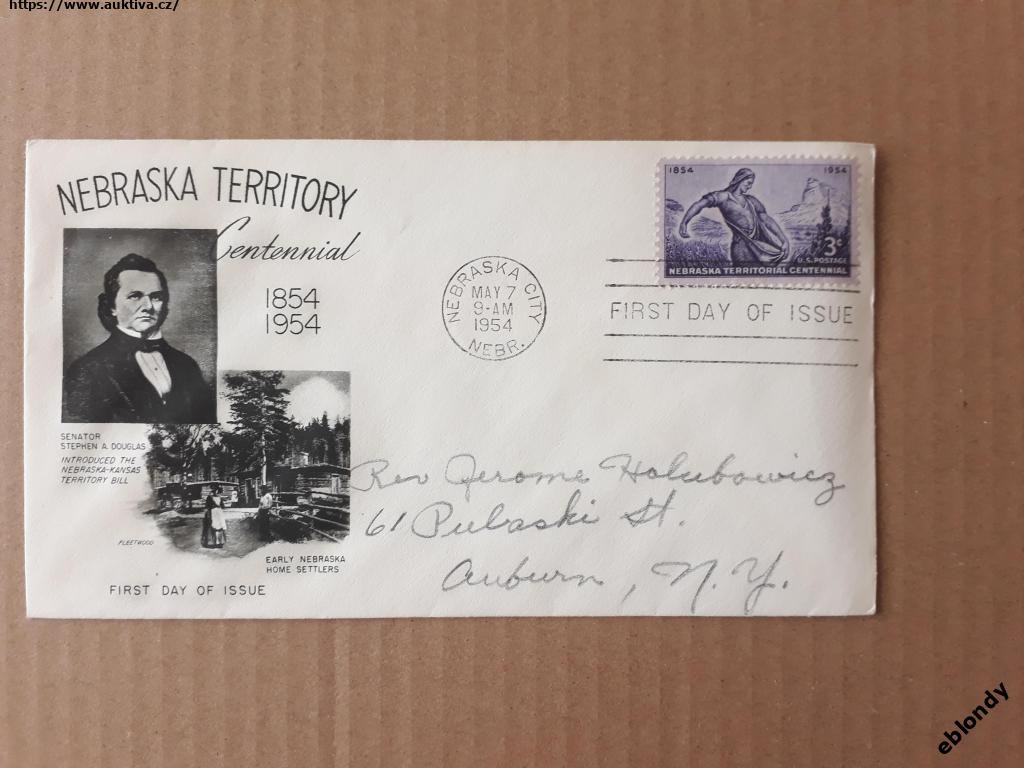 https://www.auktiva.cz/
NEBRASKA TERRITORY
Centennial
1854
1954
SENATOR
STEPHEN A. DOUGLAS
INTRODUCED THE
NEBRASKA-KANSAS
TERRITORY BILL
FLEETWOOD
EARLY NEBRASKA
HOME SETTLERS
FIRST DAY OF ISSUE
NEBRASKA CITY
MAY 7
9-AM
1954
NEBR.
1854 1954
3¢
U.S. POSTAGE
NEBRASKA TERRITORIAL CENTENNIAL
FIRST DAY OF ISSUE
Rev Jerome Holubowicz
61 Pulaski St.
Auburn, N.Y.
eblondy